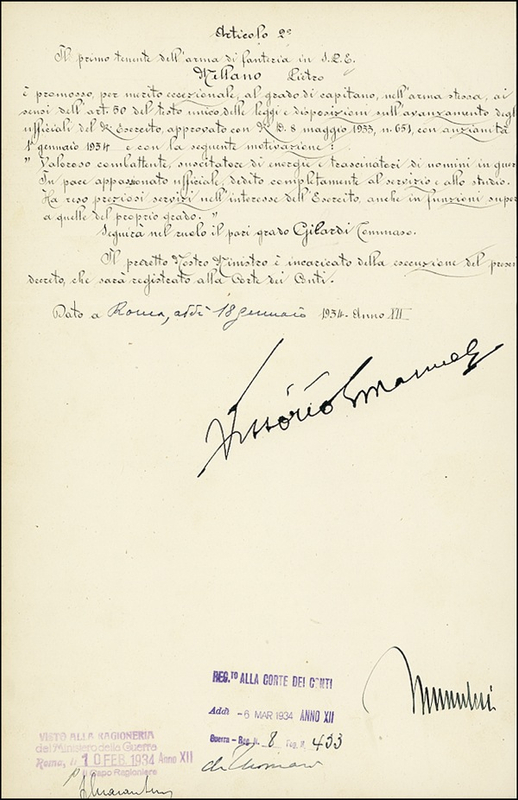 Articolo 2º
Il primo tenente dell'arma di fanteria in S.P.E.
Millano Pietro
è promosso, per merito eccezionale, al grado di capitano, nell'arma stessa, ai
sensi dell'art. 50 del testo unico delle leggi e disposizioni sull'avanzamento degli
ufficiali del R. Esercito, approvato con R. D. 8 maggio 1933, n. 651, con anzianità
1º gennaio 1934 e con la seguente motivazione:
" Valoroso combattente, suscitatore di energie e trascinatori di uomini in guer
In pace appassionato ufficiale, dedito completamente al servizio e allo studio.
Ha reso preziosi servizi nell'interesse dell'Esercito, anche in funzioni super
a quelle del proprio grado. "
Seguirà nel ruolo il pari grado Gilardi Tommaso.
Il predetto Nostro Ministro è incaricato della esecuzione del presen
decreto, che sarà registrato alla Corte dei Conti.
Dato a Roma, addì 18 gennaio 1934 - Anno XII
Vittorio Emanuele
Mussolini
REG.TO ALLA CORTE DEI CONTI
Addì - 6 MAR 1934 ANNO XII
Guerra - Reg. N. 8 Fog. N. 433
VISTO ALLA RAGIONERIA
del Ministero della Guerra
Roma, li 10 FEB. 1934 Anno XII
Il Capo Ragioniere